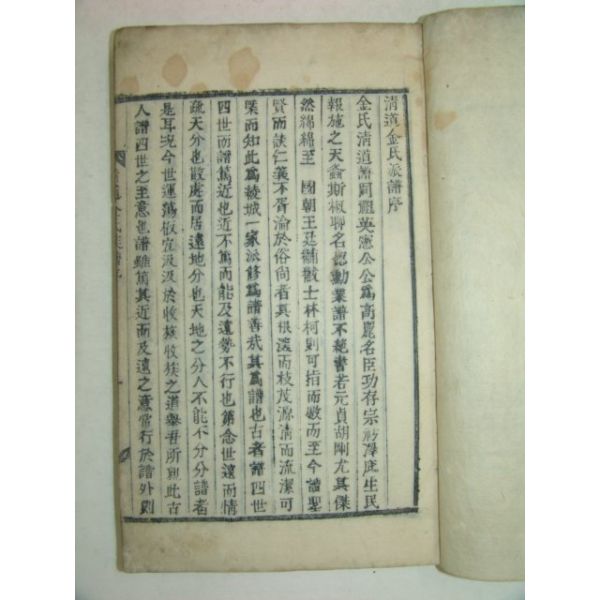 清道金氏派譜序
金氏清道譜同祖英憲公公爲高麗名臣功存宗祊澤庇生民
報施之天螽斯椒聊名認勳業譜不絶書若元貞胡剛尤其傑
然綿綿至 國朝王廷黼黻士林柯則可指而數而至今讀聖
賢而談仁義不胥淪於俗尙者其根深而枝茂源清而流潔可
槩而知此爲綾城一家派修爲譜善哉其爲譜也古者譜四世
四世而譜篤近也近不篤而能及遠勢不行也第念世遠而情
疏天分也散處而居遠地分也天地之分人不能不分分譜者
是耳况今世運蕩板宜汲汲於收族收族之道擧吾所則此古
人譜四世之至意也譜雖篤其近而及遠之意常行於譜外則
清道金氏派譜序